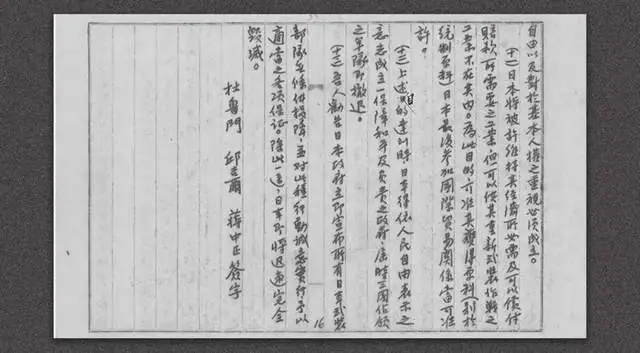 自由以及對於基本人權之重視必須成立。
(十一)日本將被許維持其經濟所必需及可以償付
賠款所需要之工業,但可以使其重新武裝作戰之
工業不在其內。為此目的,亦准其獲得原料(別於
統制原料)日本最後參加國際貿易關係當可准
許。
(十二)上述目的達到時日本得依人民自由表示之
意志成立一保障和平及負責之政府,屆時三國佔領
之軍隊即撤退。
(十三)吾人勸告日本政府立即宣布所有日本武裝
部隊無條件投降,並對此種行動誠意實行予以
適當之各項保証。除此一途,日本即將迅速完全
毀滅。
杜魯門 邱吉爾 蔣中正 簽字
16